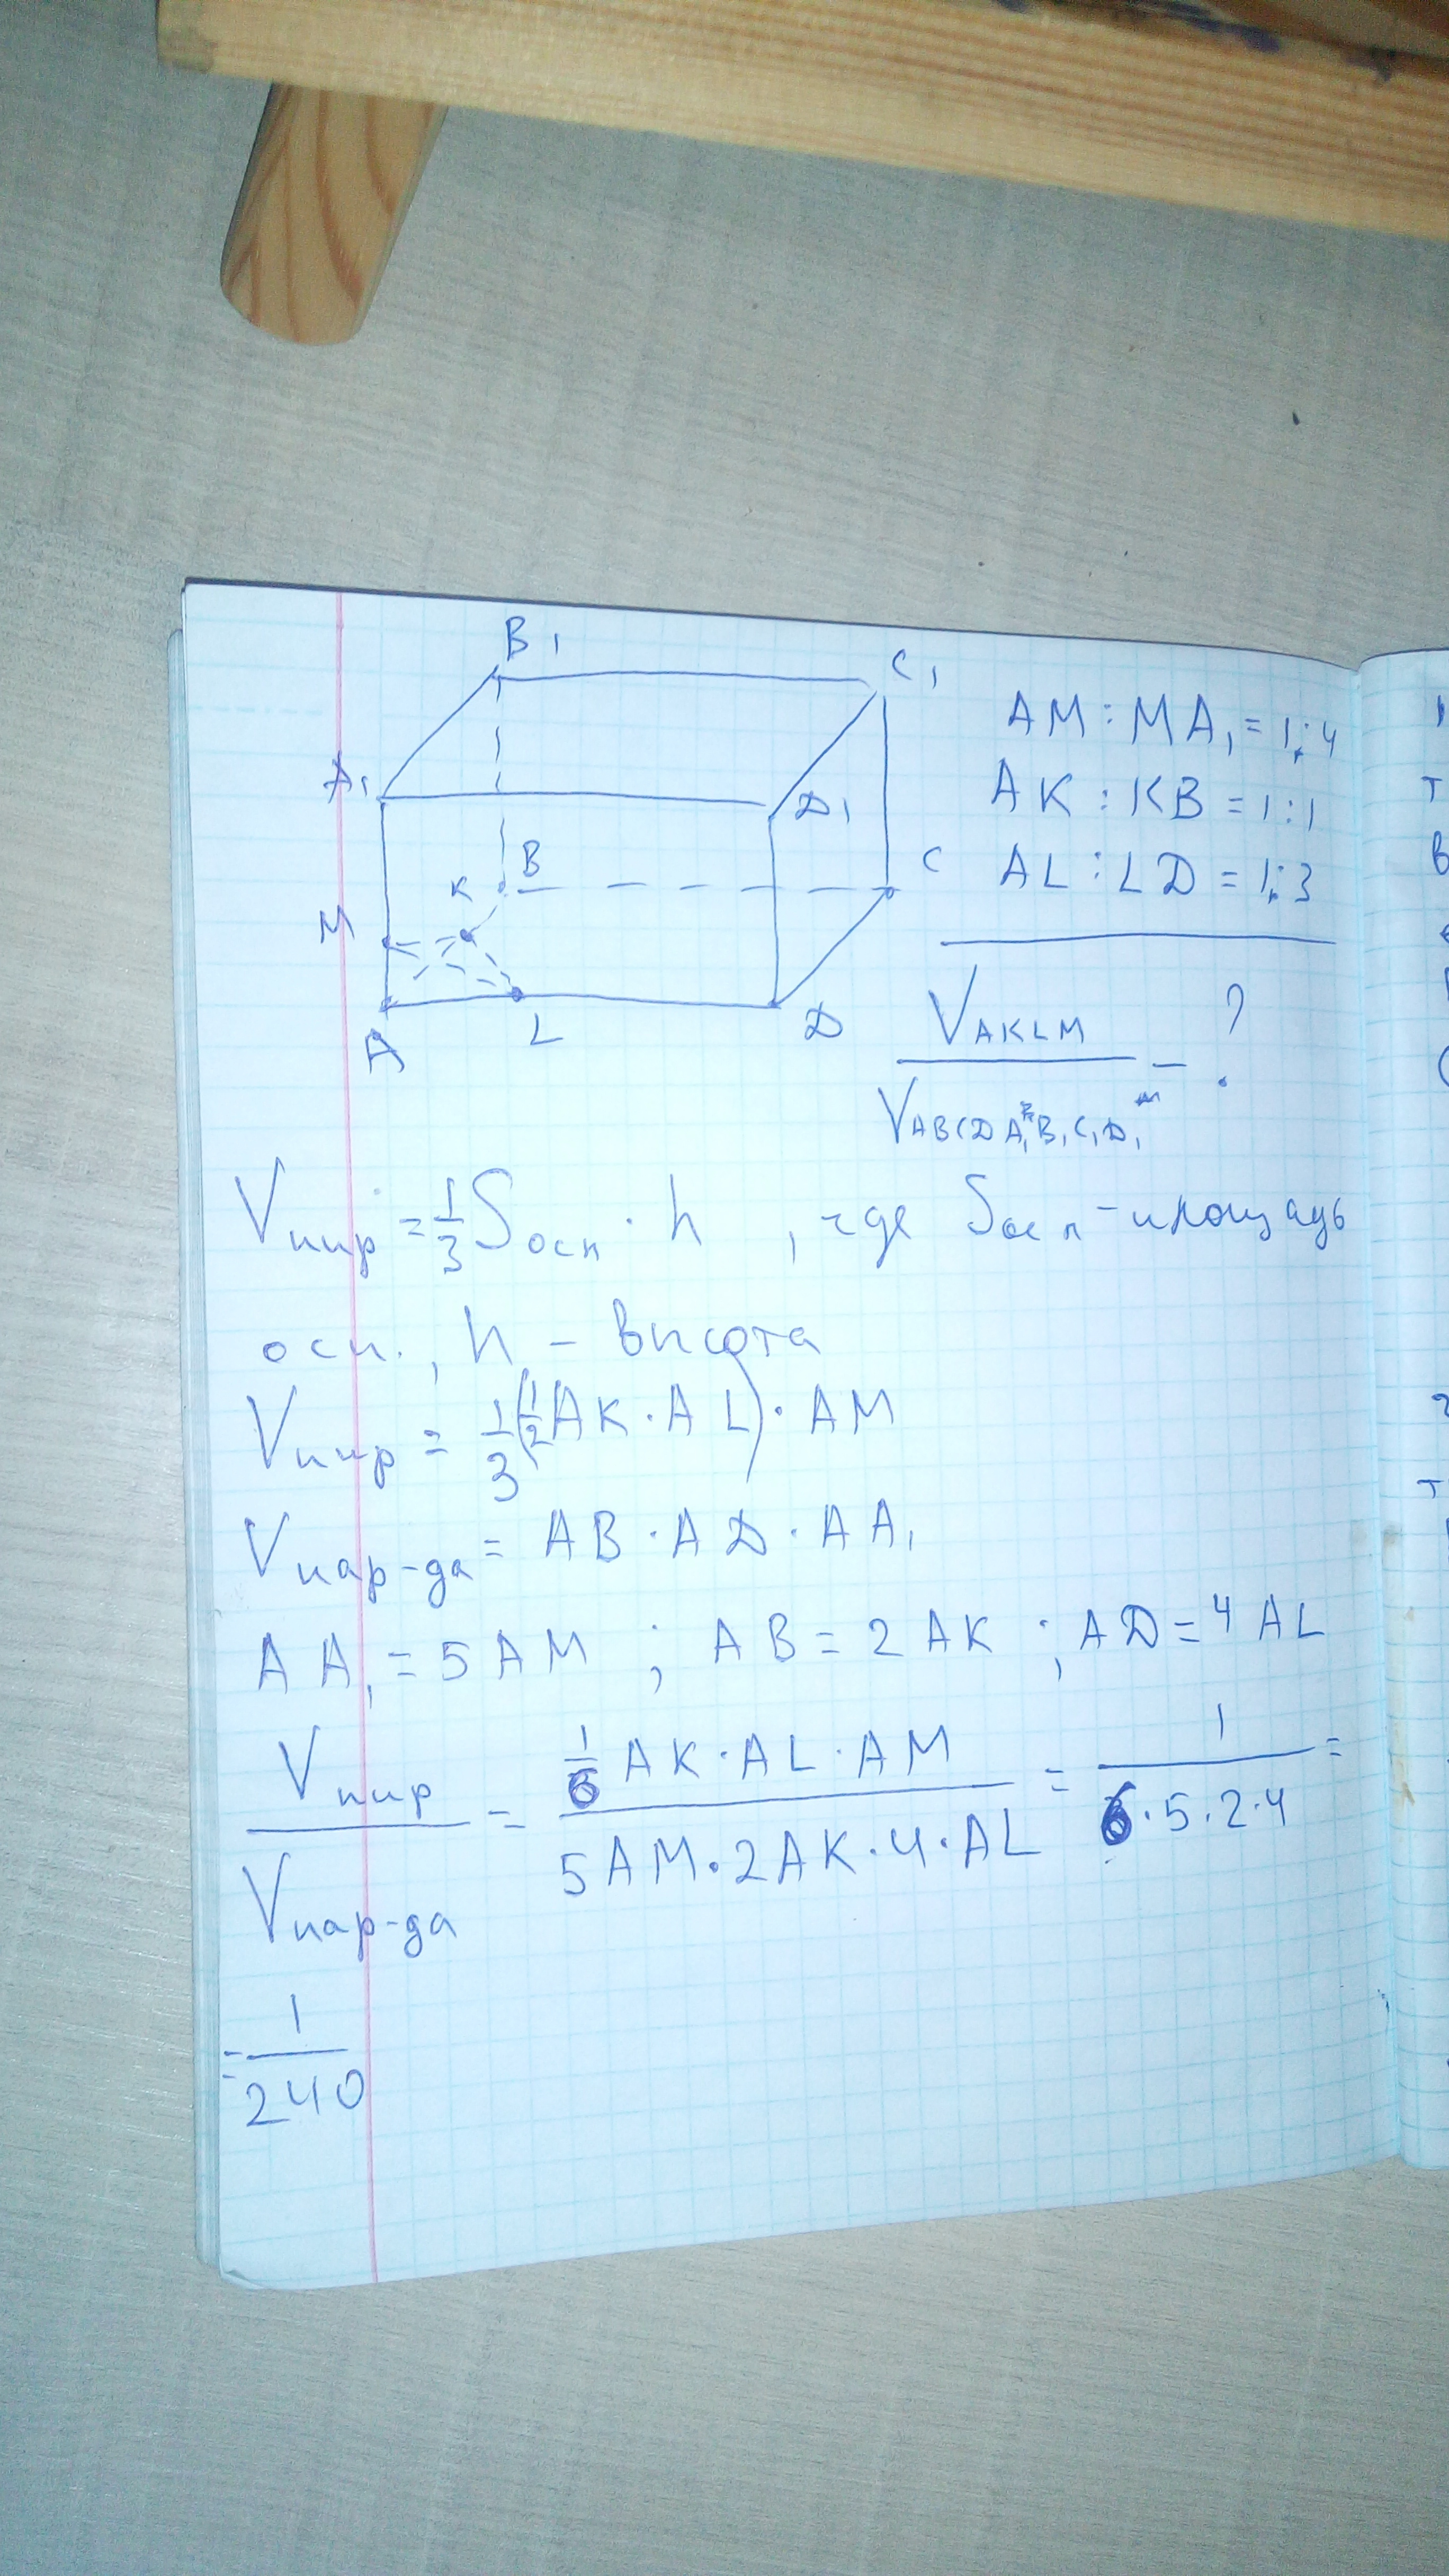 B₁
C₁
A₁
D₁
B
K
C
M
A
L
D
AM : MA₁ = 1:4
AK : KB = 1:1
AL : LD = 1:3
V AKLM / V ABCDA₁B₁C₁D₁ = ?
Vпир = 1/3 Sосн · h , где Sосн - площадь
осн. , h - высота
Vпир = 1/3 (1/2 AK · AL) · AM
Vпар-да = AB · AD · AA₁
AA₁ = 5AM ; AB = 2AK ; AD = 4AL
Vпир / Vпар-да = 1/6 AK · AL · AM / 5AM · 2AK · 4 · AL = 1 / 6 · 5 · 2 · 4 =
= 1/240